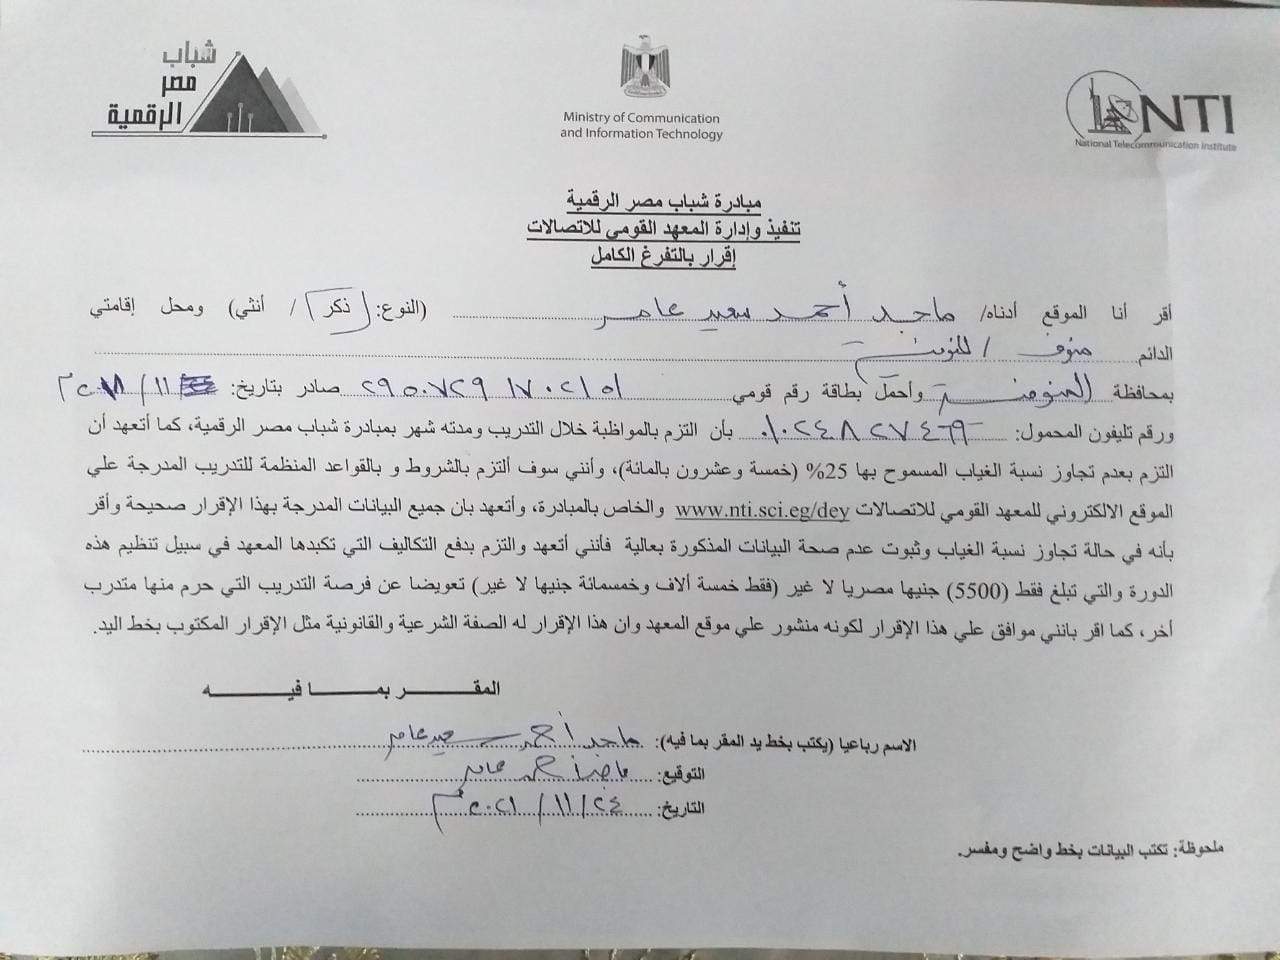 شباب
مصر
الرقمية
Ministry of Communication
and Information Technology
NTI
National Telecommunication Institute
مبادرة شباب مصر الرقمية
تنفيذ وإدارة المعهد القومي للاتصالات
إقرار بالتفرغ الكامل
أقر أنا الموقع أدناه/ ماجد أحمد سعيد عامر (النوع: ذكر / أنثي) ومحل إقامتي
الدائم منوف / المنوفية
بمحافظة المنوفية وأحمل بطاقة رقم قومي ٢٩٥٠٧٢٩١٧٠٢١٥١ صادر بتاريخ: / ١١
ورقم تليفون المحمول: ٠١٠٢٤٨٢٧٤٦٩ بأن التزم بالمواظبة خلال التدريب ومدته شهر بمبادرة شباب مصر الرقمية، كما أتعهد أن
التزم بعدم تجاوز نسبة الغياب المسموح بها 25% (خمسة وعشرون بالمائة)، وأنني سوف ألتزم بالشروط و بالقواعد المنظمة للتدريب المدرجة علي
الموقع الالكتروني للمعهد القومي للاتصالات www.nti.sci.eg/dey والخاص بالمبادرة، وأتعهد بان جميع البيانات المدرجة بهذا الإقرار صحيحة وأقر
بأنه في حالة تجاوز نسبة الغياب وثبوت عدم صحة البيانات المذكورة بعالية فأنني أتعهد والتزم بدفع التكاليف التي تكبدها المعهد في سبيل تنظيم هذه
الدورة والتي تبلغ فقط (5500) جنيها مصريا لا غير (فقط خمسة ألاف وخمسمائة جنيها لا غير) تعويضا عن فرصة التدريب التي حرم منها متدرب
أخر، كما اقر بانني موافق علي هذا الإقرار لكونه منشور علي موقع المعهد وان هذا الإقرار له الصفة الشرعية والقانونية مثل الإقرار المكتوب بخط اليد.
المقــــــر بمــــا فيــــــه
الاسم رباعيا (يكتب بخط يد المقر بما فيه): ماجد أحمد سعيد عامر
التوقيع: ماجد أحمد عامر
التاريخ: ٢٤ / ١١ / ٢٠٢١ م
ملحوظة: تكتب البيانات بخط واضح ومفسر.